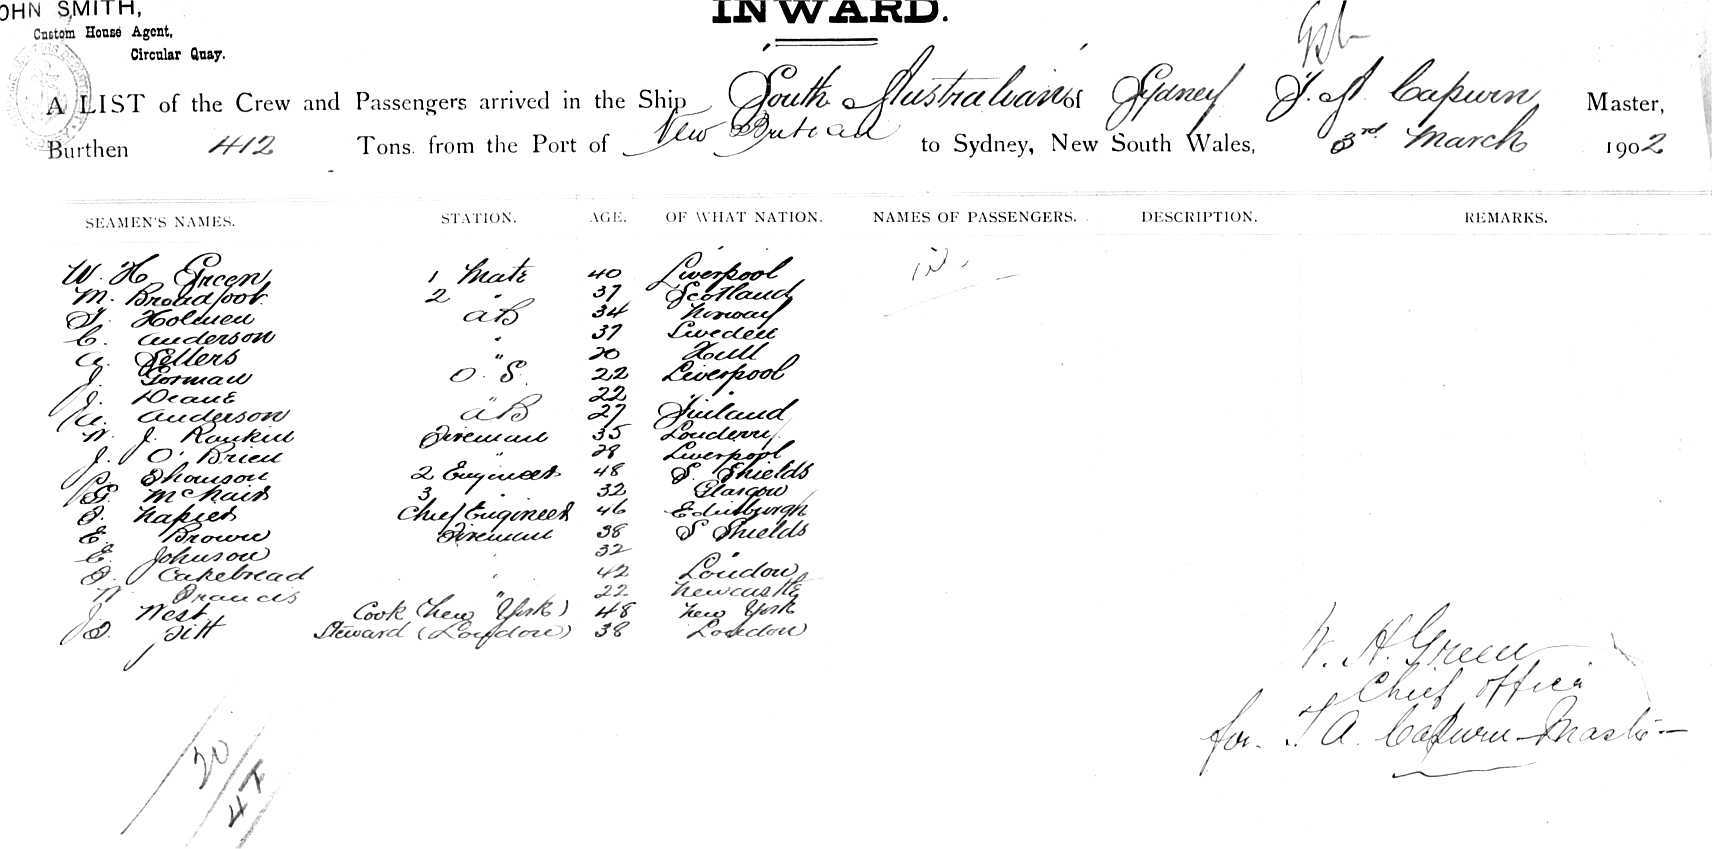 JOHN SMITH,
Custom House Agent,
Circular Quay.
INWARD.
A LIST of the Crew and Passengers arrived in the Ship South Australian of Sydney T. A. Capurn Master,
Burthen 412 Tons from the Port of New Britain to Sydney, New South Wales, 3rd March 1902
SEAMEN'S NAMES. STATION. AGE. OF WHAT NATION. NAMES OF PASSENGERS. DESCRIPTION. REMARKS.
W. H Green 1 Mate 40 Liverpool
M. Broadfoot 2 " 37 Scotland
T. Holmen AB 34 Norway
C. Anderson " 37 Sweden
A. Sellers " 20 Hull
J. Gorman O. S. 22 Liverpool
J. Deane 22 "
A. Anderson AB 27 Finland
W. J. Rankin Fireman 35 Londerry
J. O'Brien " 28 Liverpool
Thomson 2 Engineer 48 S. Shields
G. McNair 3 " 32 Glasgow
J. Napier Chief Engineer 46 Edinburgh
E. Brown Fireman 38 S Shields
C. Johnson " 32 "
F. Cakebread " 42 London
W. Francis " 22 Newcastle
J. West Cook (New York) 48 New York
F. Titt Steward (London) 38 London
W. H. Green
Chief Officer
for T A. Capurn Master
20
47